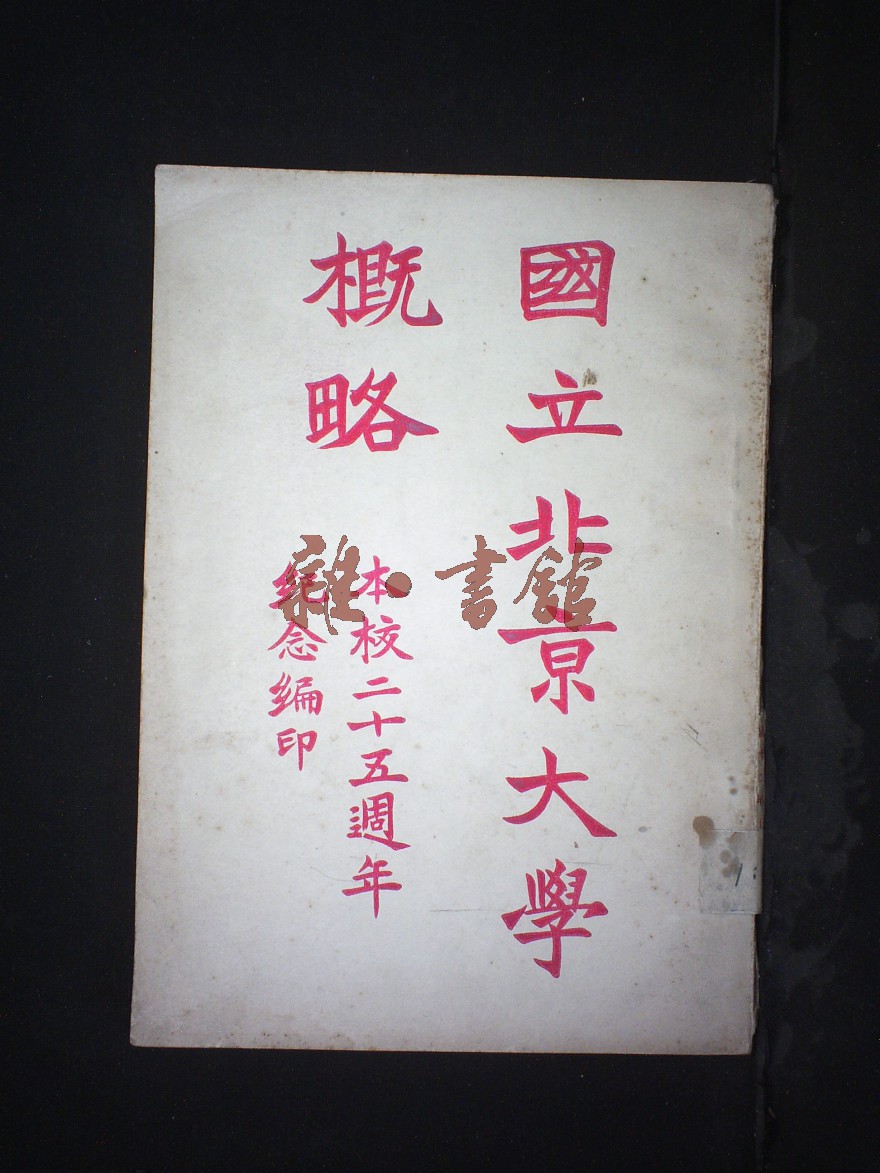 國立北京大學
概略
本校二十五週年
紀念編印
雜·書館
1